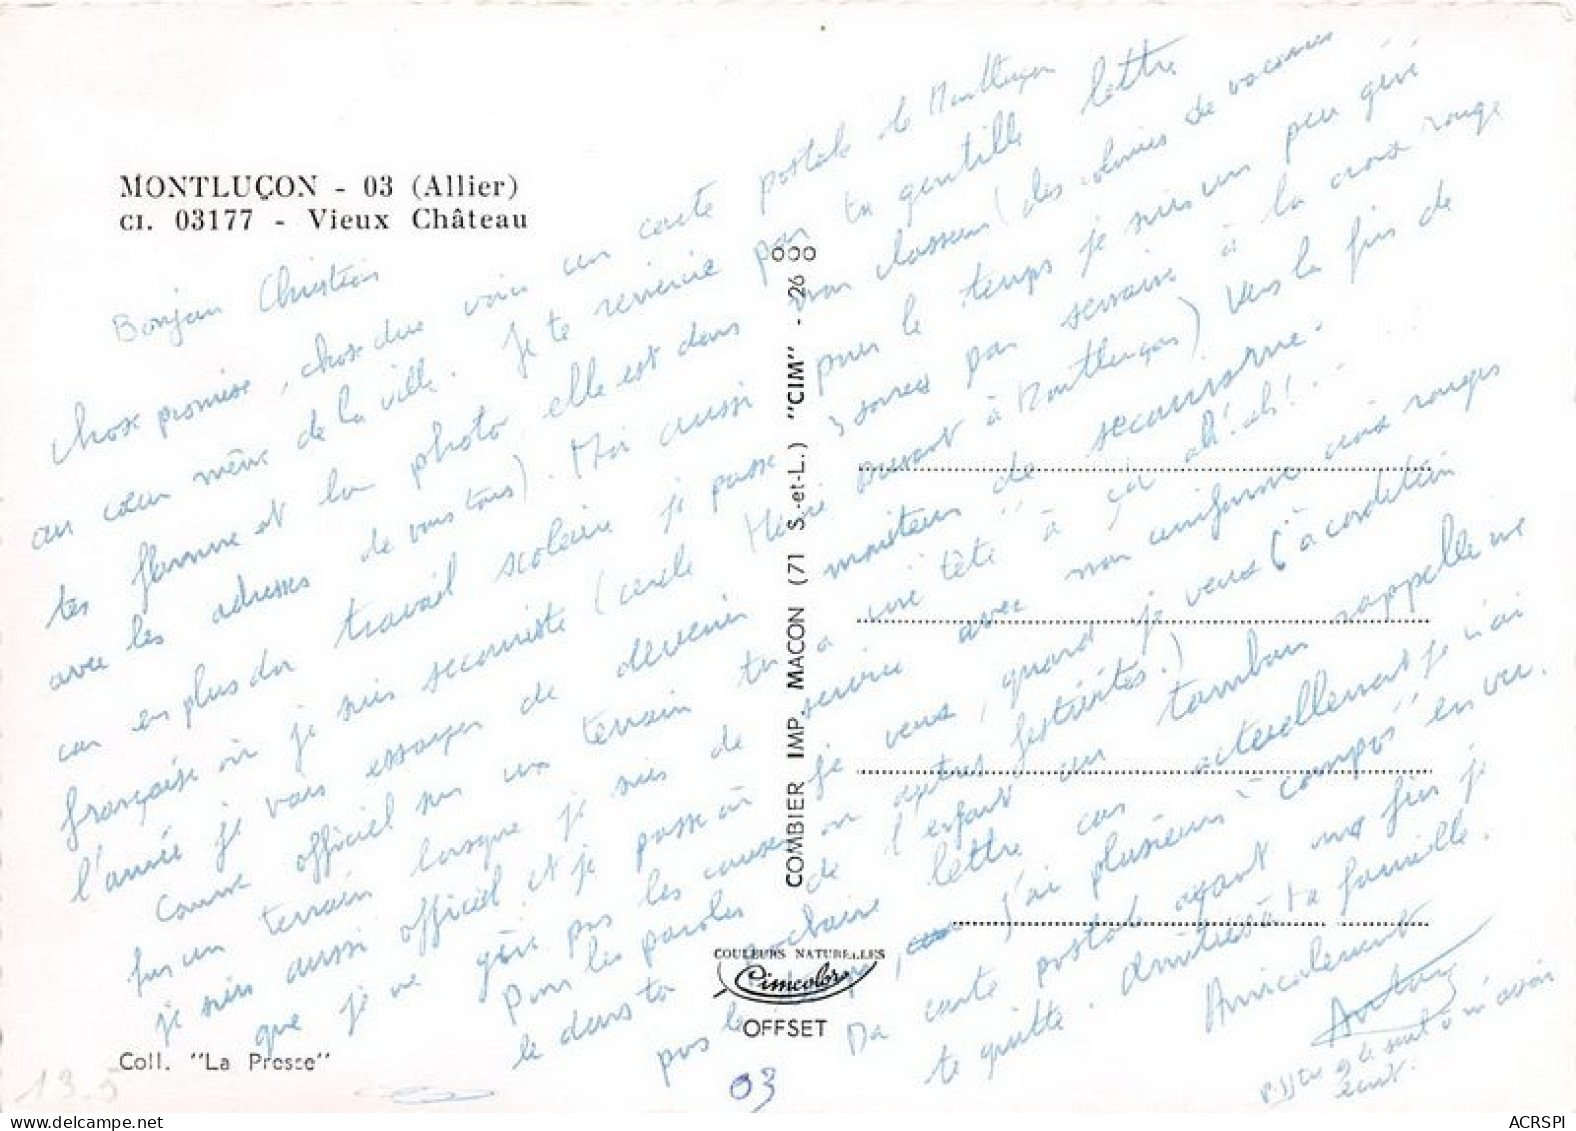 MONTLUÇON - 03 (Allier)
CI. 03177 - Vieux Château
Bonjour Christian
chose promise, chose due voici un carte postale de Montluçon
au cœur même de la ville. Je te remercie pour ta gentille lettre
tes flamme et la photo, elle est dans mon classeur (des colonies de vacances
avec les adresses de vous tous). Moi aussi pour le temps je suis un peu géné
car en plus du travail scolaire je passe 3 soirées par semaine à la croix rouge
française où je suis secouriste (cercle Henri Dunant à Montluçon) Vers la fin de
l'année je vais essayer de devenir moniteur de secourisme.
comme officiel sur un terrain tu a une tête à ça ah! ah!...
sur un terrain lorsque je suis de service avec mon uniforme croix rouges
je suis aussi officiel et je passe où je veux, quand je veux (à condition
que je ne gêne pas les coureurs ou autres festivités.)
Pour les paroles de l'enfant au tambour rappelle me
le dans ta prochaine lettre car actuellement je n'ai
pas le temps, j'ai plusieurs "compos" en vu.
Ma carte postale ayant une fin je
te quitte. Amitiés à ta famille.
Amicalement
écrit.
000
COMBIER IMP. MACON (71 S.-et-L.) "CIM" - 26
COULEURS NATURELLES
Cimcolor
OFFSET
Coll. "La Presse"
13.5
03
ACRSPI